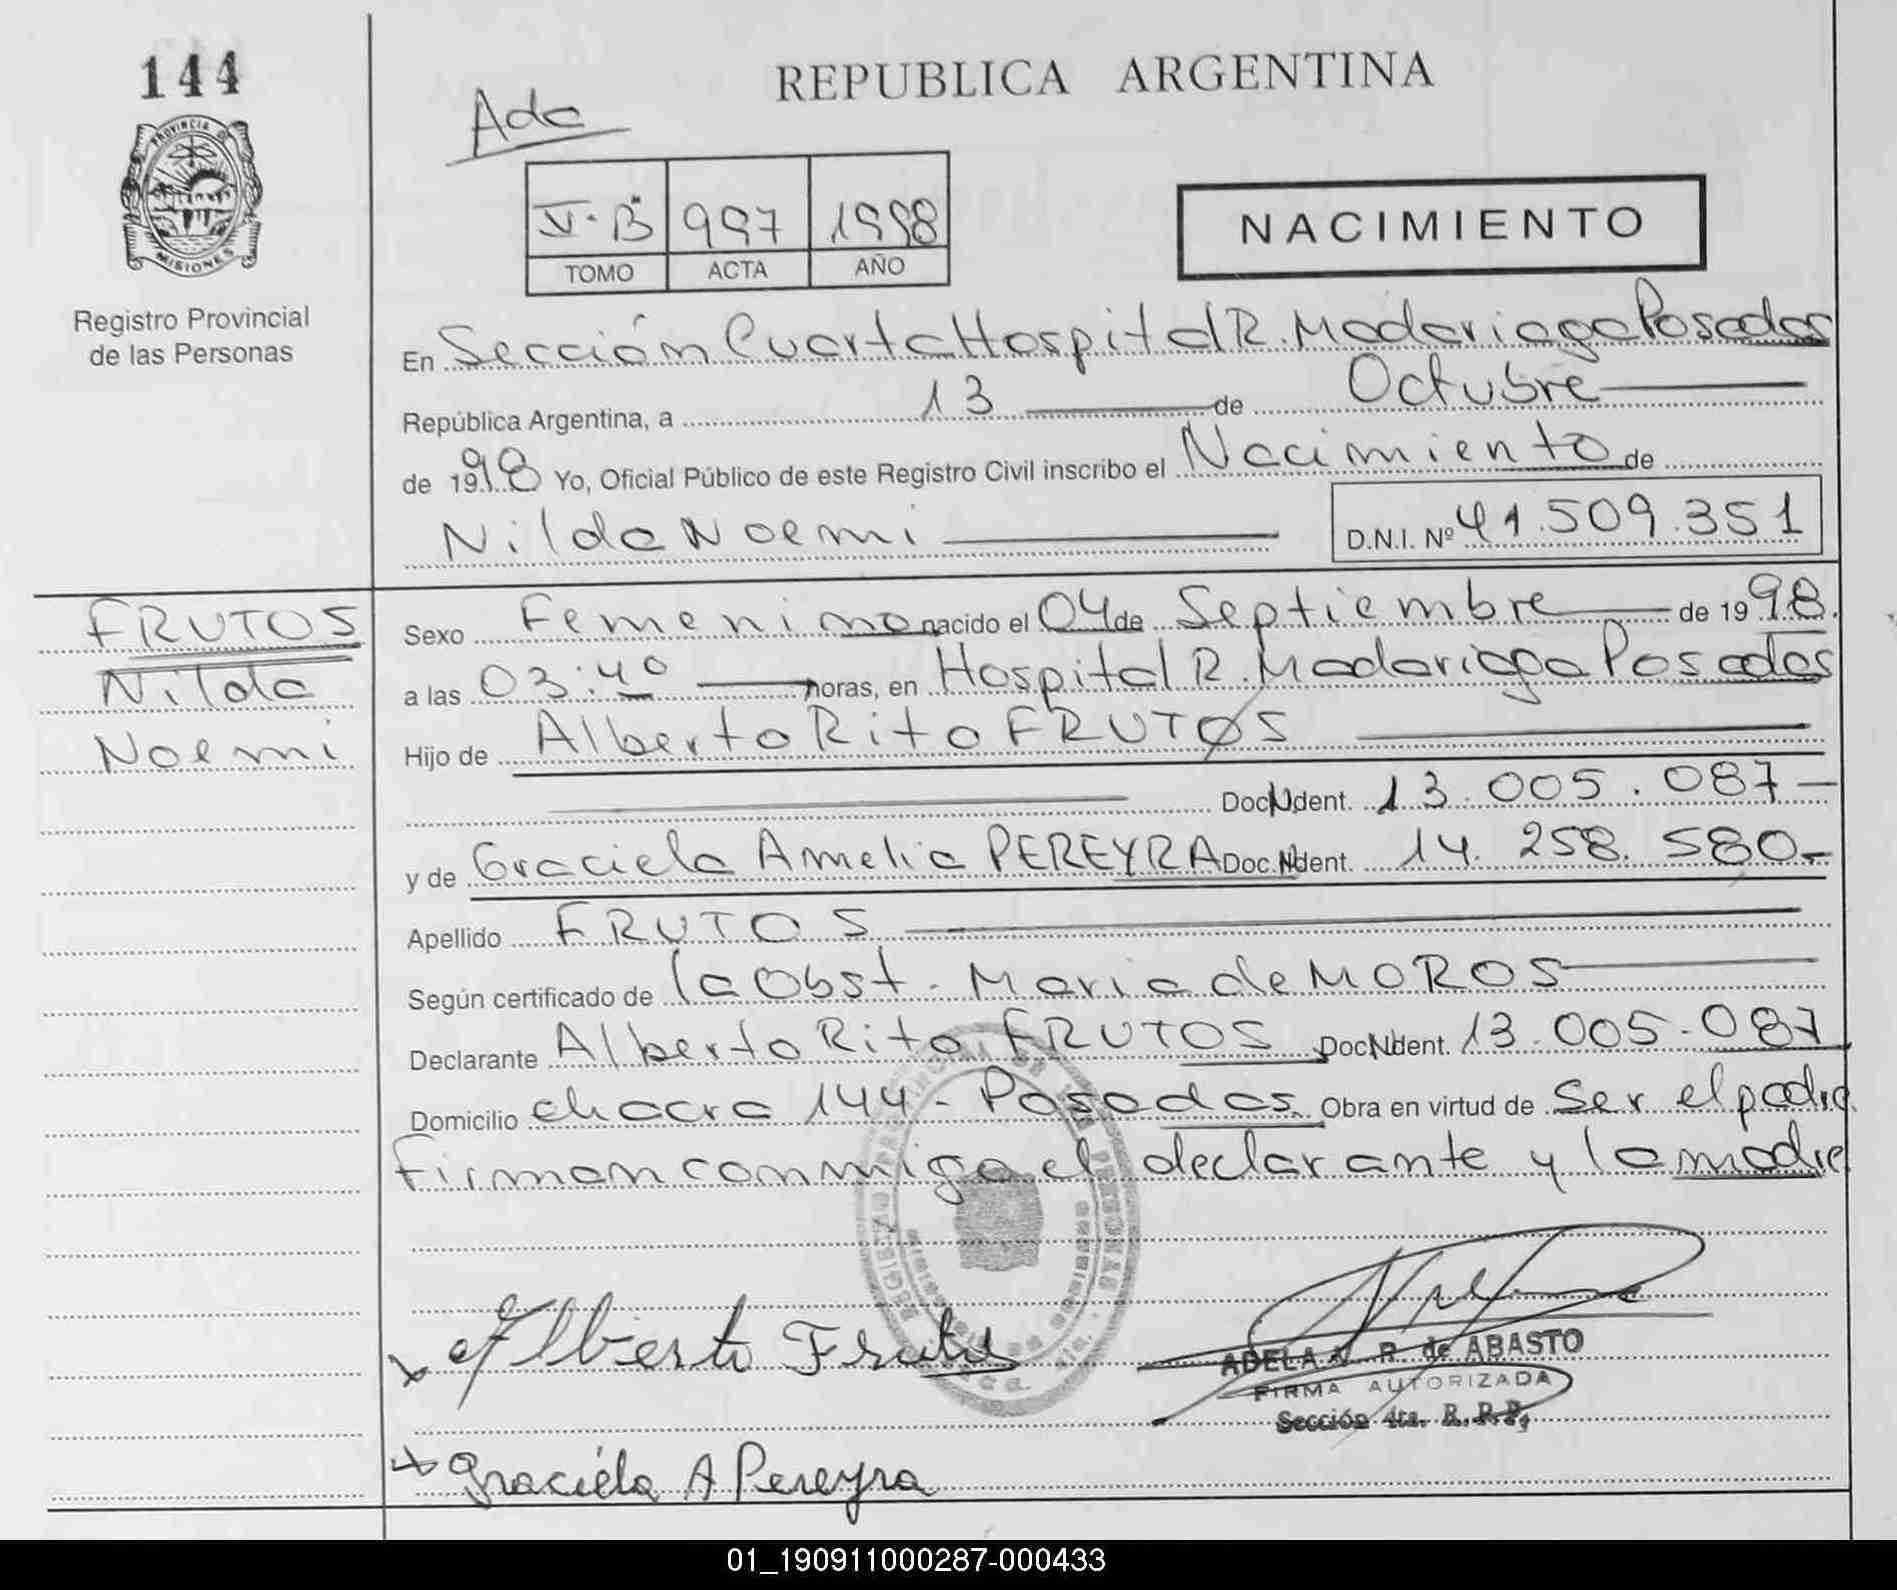 144
REPUBLICA ARGENTINA
PROVINCIA DE
MISIONES
Registro Provincial
de las Personas
V·B 997 1998
TOMO ACTA AÑO
NACIMIENTO
En Sección Cuarta Hospital R. Madariaga Posadas
República Argentina, a 13 de Octubre
de 1998 Yo, Oficial Público de este Registro Civil inscribo el Nacimiento de
Nilda Noemi D.N.I. Nº 41.509.351
FRUTOS
Nilda
Noemi
Sexo Femenino nacido el 04 de Septiembre de 1998.
a las 03:40 horas, en Hospital R. Madariaga Posadas
Hijo de Alberto Rito FRUTOS
Doc. Ident. 13.005.087-
y de Graciela Amelia PEREYRA Doc. Ident. 14.258.580-
Apellido FRUTOS
Según certificado de la Obst. Maria de MOROS
Declarante Alberto Rito FRUTOS Doc. Ident. 13.005.087
Domicilio chacra 144 - Posadas. Obra en virtud de Ser el padre
firman conmigo el declarante y la madre
Alberto Frutos
ADELA R. de ABASTO
FIRMA AUTORIZADA
Sección 4ta. R.P.P.
Graciela A Pereyra
01_190911000287-000433